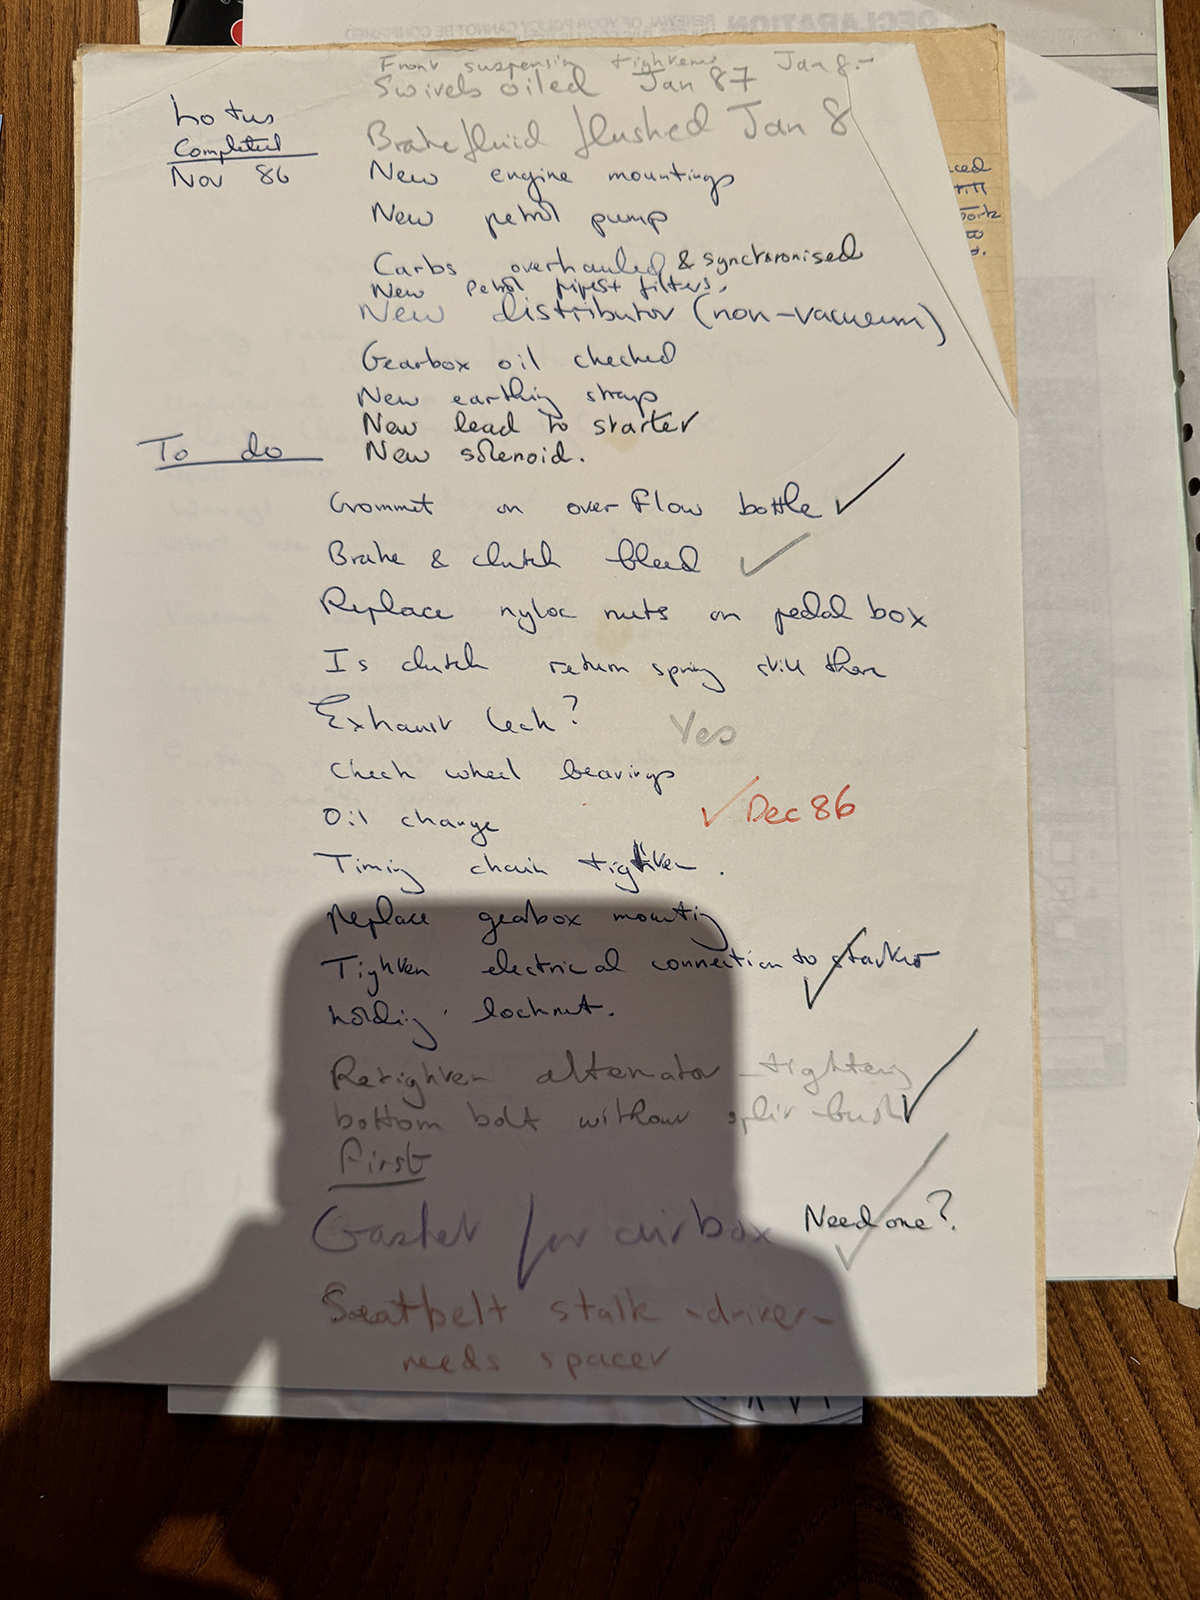 DECLARATION
RENEWAL OF YOUR POLICY CANNOT BE CONFIRMED
Front suspension tightened Jan 8
Swivels oiled Jan 87
Lotus
Completed
Nov 86
Brake fluid flushed Jan 8
New engine mountings
New petrol pump
Carbs overhauled & synchronised
New petrol pipes + filters.
New distributor (non-vacuum)
Gearbox oil checked
New earthing straps
New lead to starter
New solenoid.
To do
Grommet on over flow bottle ✓
Brake & clutch bleed ✓
Replace nyloc nuts on pedal box
Is clutch return spring still there
Exhaust leak? Yes
Check wheel bearings
Oil change ✓ Dec 86
Timing chain tighten.
Replace gearbox mounting
Tighten electrical connection to starter ✓
holding locknut.
Retighten alternator - tightening
bottom bolt without split bush ✓
First
Gasket for airbox Need one? ✓
Seatbelt stalk - driver -
needs spacer